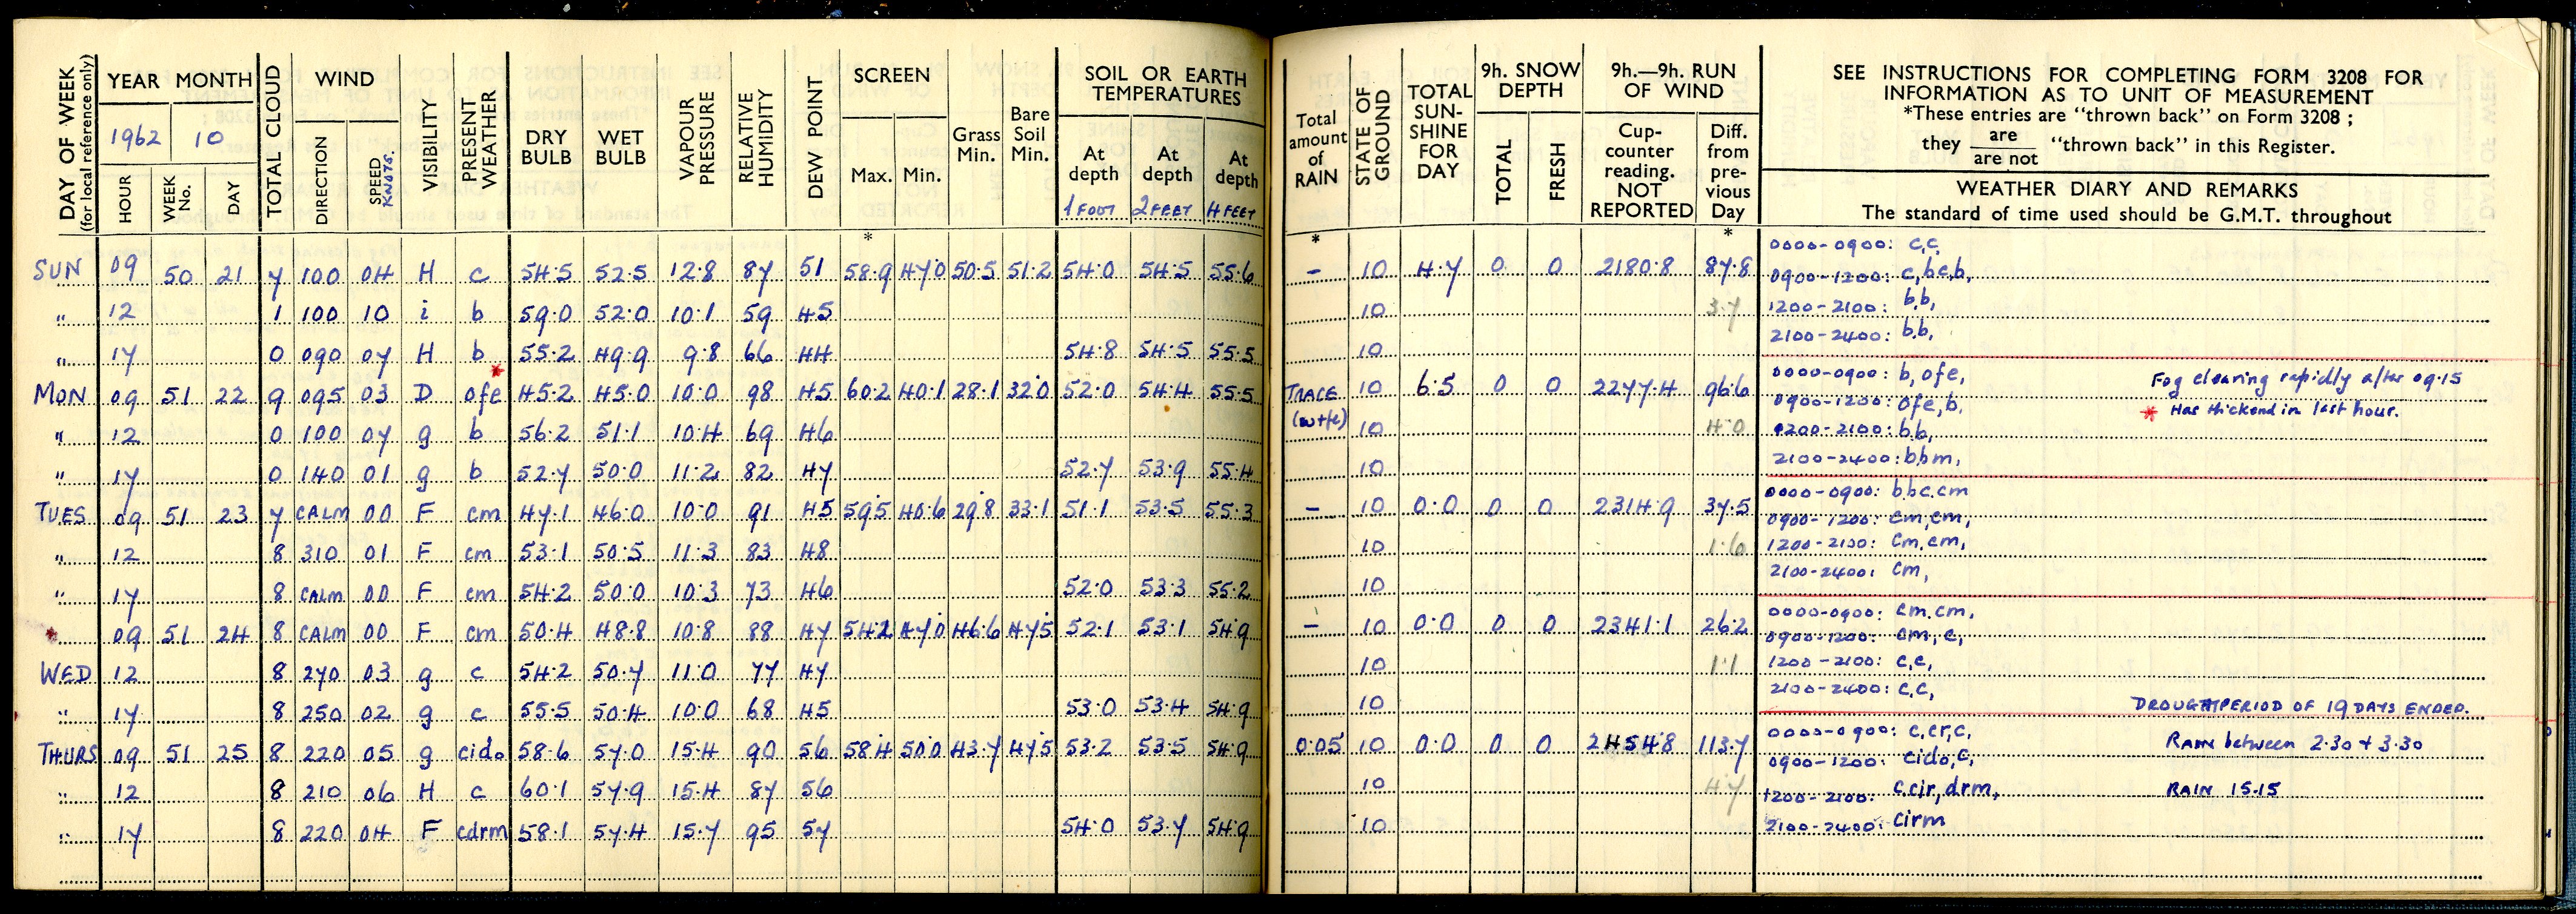 DAY OF WEEK
(for local reference only)
YEAR MONTH
1962 10
HOUR WEEK No. DAY
TOTAL CLOUD
WIND
DIRECTION SPEED KNOTS.
VISIBILITY
PRESENT WEATHER
DRY BULB
WET BULB
VAPOUR PRESSURE
RELATIVE HUMIDITY
DEW POINT
SCREEN
Max. Min.
Grass Min.
Bare Soil Min.
SOIL OR EARTH TEMPERATURES
At depth At depth At depth
1 FOOT 2 FEET 4 FEET
*
SUN 09 50 21 7 100 04 H c 54.5 52.5 12.8 87 51 58.9 47.0 50.5 51.2 54.0 54.5 55.6
" 12 1 100 10 i b 59.0 52.0 10.1 59 45
" 17 0 090 07 H b 55.2 49.9 9.8 66 44 54.8 54.5 55.5
*
MON 09 51 22 9 095 03 D ofe 45.2 45.0 10.0 98 45 60.2 40.1 28.1 32.0 52.0 54.4 55.5
" 12 0 100 07 g b 56.2 51.1 10.4 69 46
" 17 0 140 01 g b 52.7 50.0 11.2 82 47 52.7 53.9 55.4
TUES 09 51 23 7 CALM 00 F cm 47.1 46.0 10.0 91 45 59.5 40.6 29.8 33.1 51.1 53.5 55.3
" 12 8 310 01 F cm 53.1 50.5 11.3 83 48
" 17 8 CALM 00 F cm 54.2 50.0 10.3 73 46 52.0 53.3 55.2
* 09 51 24 8 CALM 00 F cm 50.4 48.8 10.8 88 47 54.2 47.0 46.6 47.5 52.1 53.1 54.9
WED 12 8 270 03 g c 54.2 50.7 11.0 77 47
" 17 8 250 02 g c 55.5 50.4 10.0 68 45 53.0 53.4 54.9
THURS 09 51 25 8 220 05 g cido 58.6 57.0 15.4 90 56 58.4 50.0 43.7 47.5 53.2 53.5 54.9
" 12 8 210 06 H c 60.1 57.9 15.4 87 56
" 17 8 220 04 F cdrm 58.1 57.4 15.7 95 57 54.0 53.7 54.9
Total amount of RAIN
STATE OF GROUND
TOTAL SUN-SHINE FOR DAY
9h. SNOW DEPTH
TOTAL FRESH
9h.—9h. RUN OF WIND
Cup-counter reading. NOT REPORTED
Diff. from pre-vious Day
SEE INSTRUCTIONS FOR COMPLETING FORM 3208 FOR
INFORMATION AS TO UNIT OF MEASUREMENT
*These entries are "thrown back" on Form 3208 ;
they are / are not "thrown back" in this Register.
WEATHER DIARY AND REMARKS
The standard of time used should be G.M.T. throughout
* *
0000-0900: c,c,
– 10 4.7 0 0 2180.8 87.8 0900-1200: c,bc,b,
10 3.7 1200-2100: b,b,
10 2100-2400: b.b,
TRACE 10 6.5 0 0 2277.4 96.6 0000-0900: b,ofe, Fog clearing rapidly after 09.15
(wtfc) 0900-1200: ofe,b. * Has thickend in last hour.
10 4.0 1200-2100: b.b,
10 2100-2400: b.bm,
– 10 0.0 0 0 2314.9 37.5 0000-0900: b.bc.cm
0900-1200: cm,cm,
10 1.6 1200-2100: cm.cm,
10 2100-2400: cm,
– 10 0.0 0 0 2341.1 26.2 0000-0900: cm.cm,
0900-1200: cm,c,
10 1.1 1200-2100: c,c,
10 2100-2400: c,c, DROUGHT PERIOD OF 19 DAYS ENDED.
0.05 10 0.0 0 0 2454.8 113.7 0000-0900: c,cr,c, RAIN between 2.30 + 3.30
0900-1200: cido,c,
10 4.7 1200-2100: c,cir,drm, RAIN 15.15
10 2100-2400: cirm